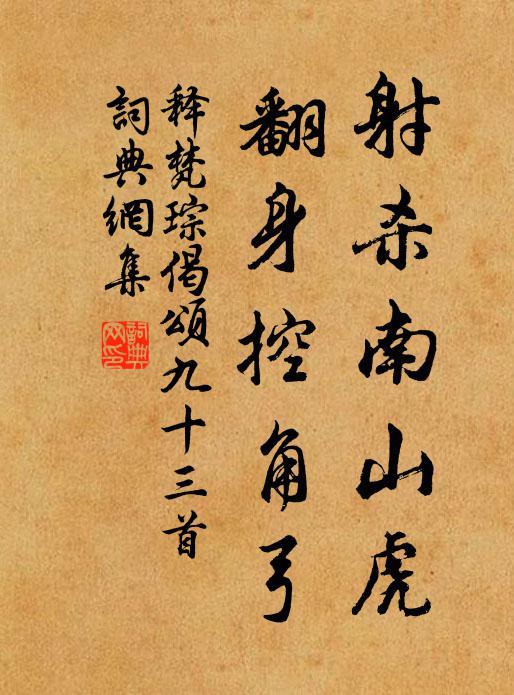 射杀南山虎
翻身控角弓
释梵琮偈颂九十三首
詞典網集
詞典网印